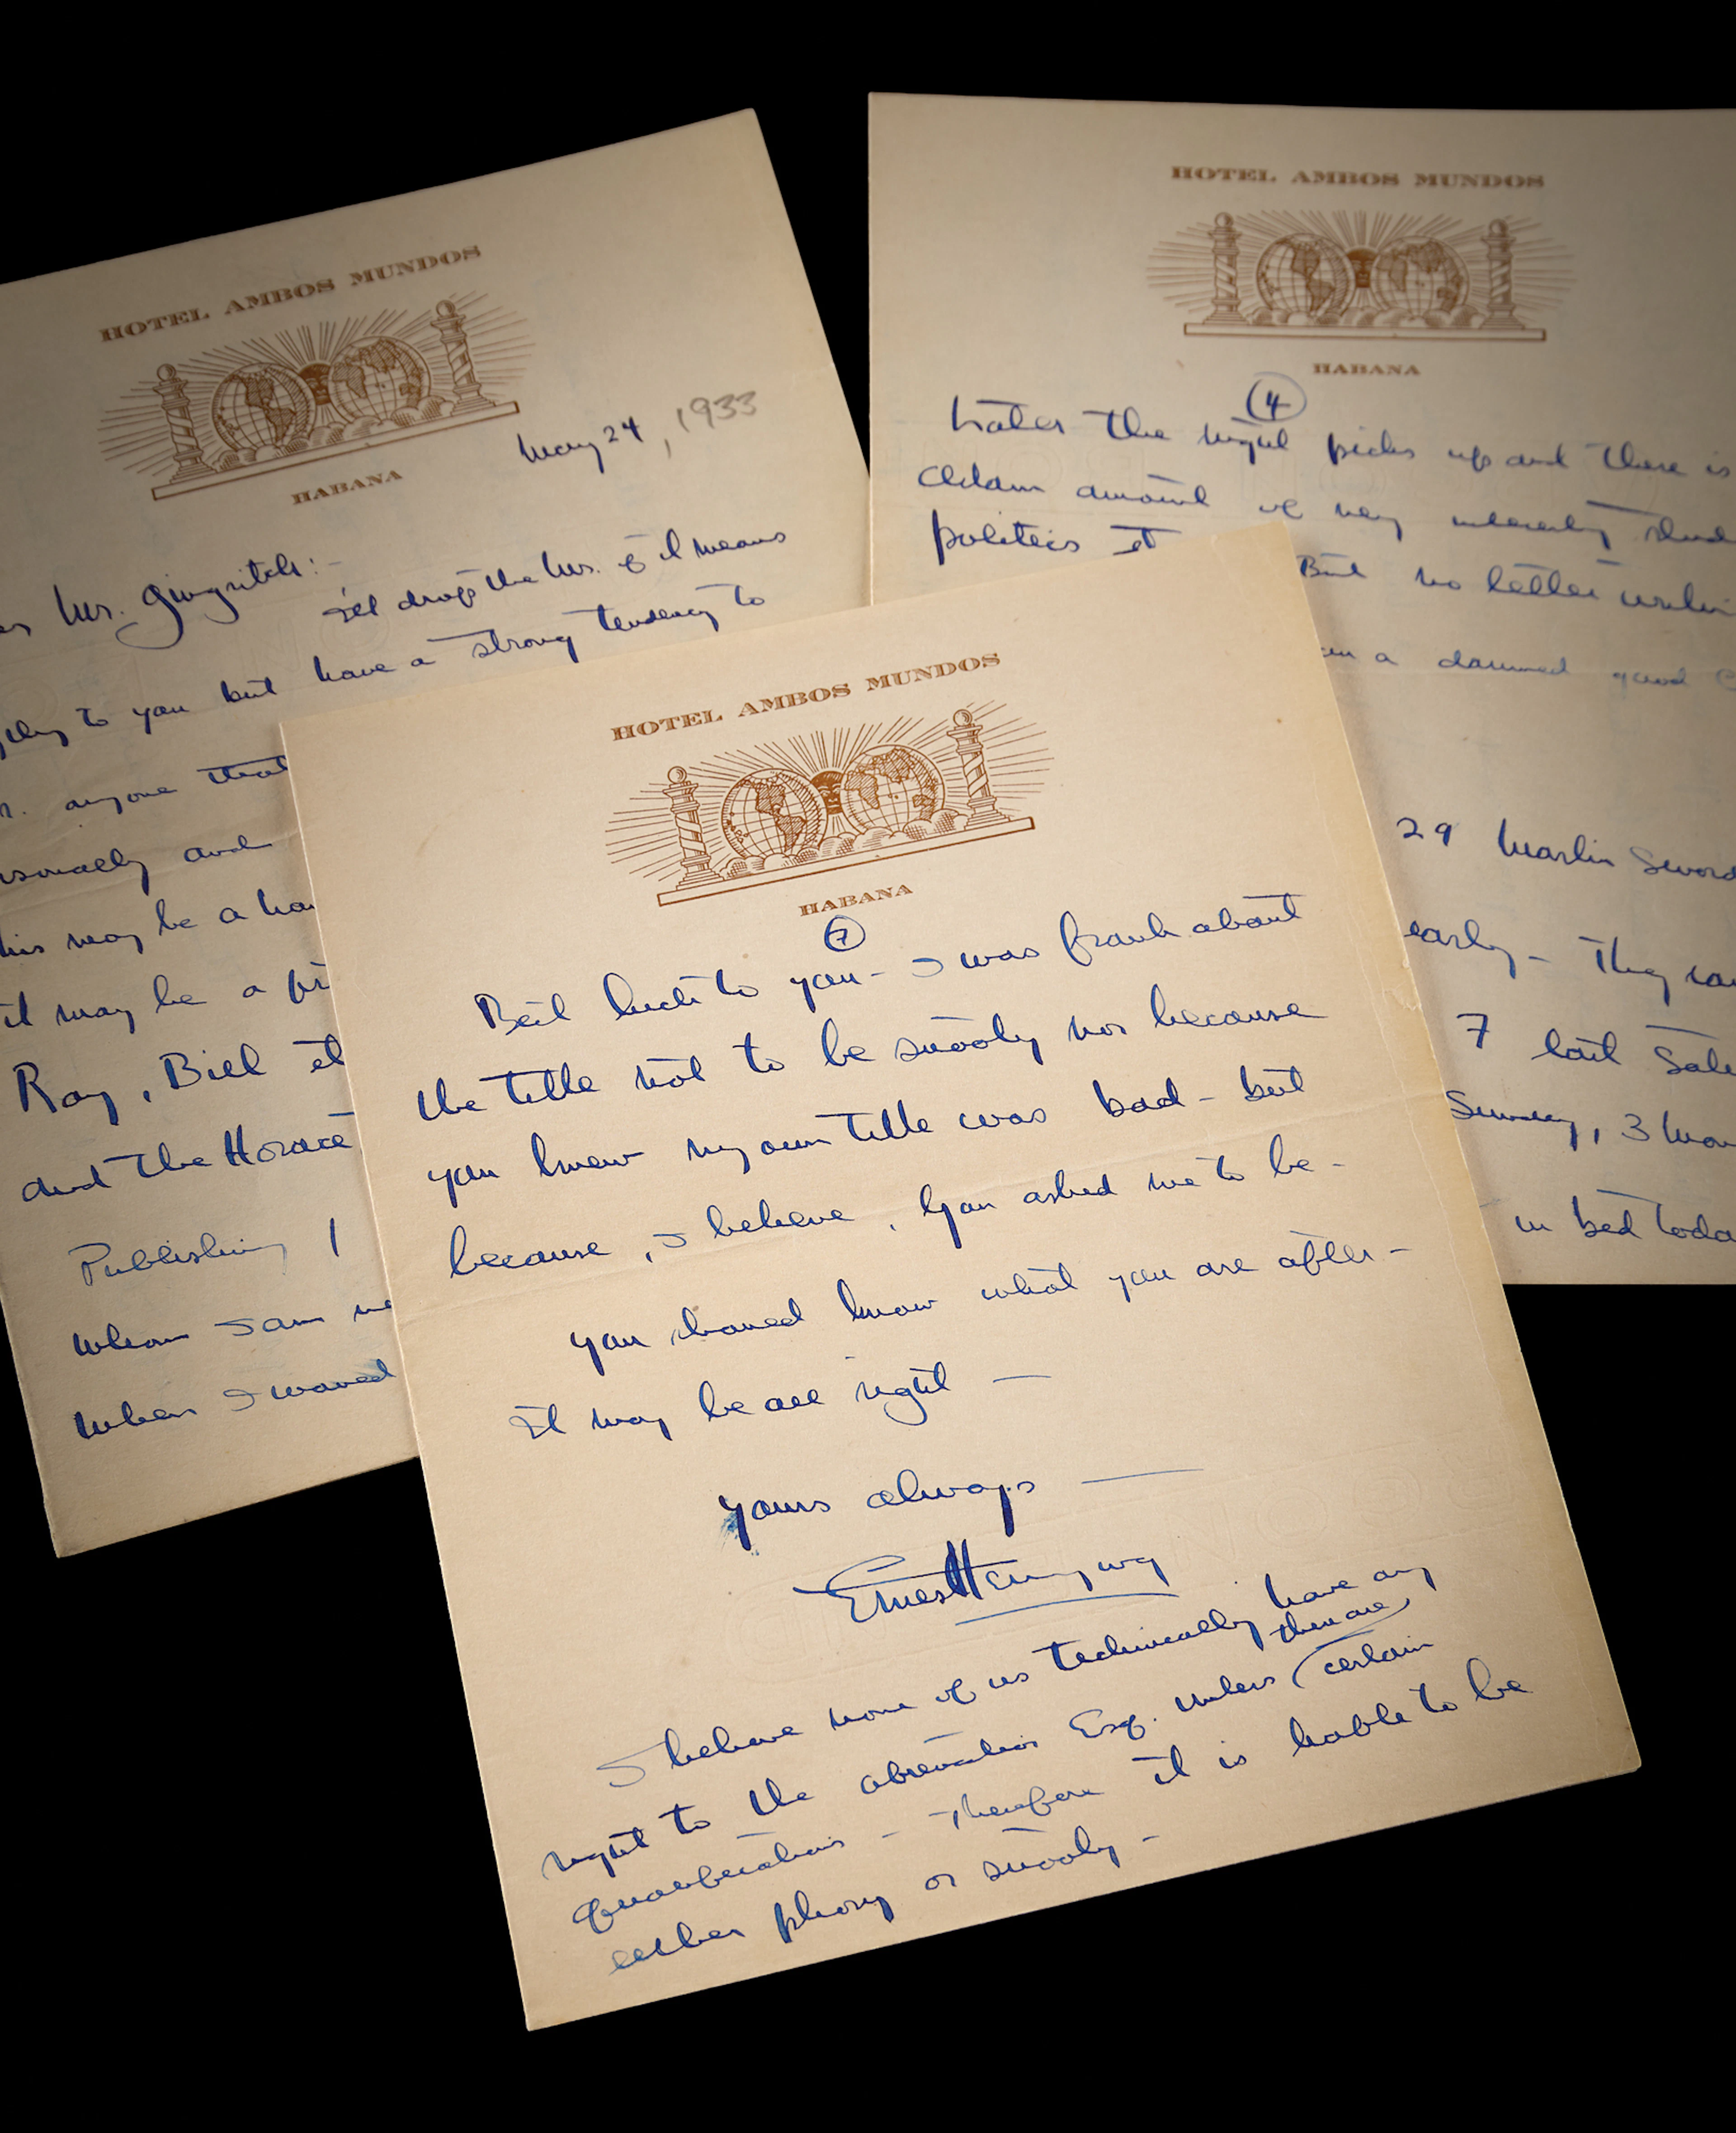 HOTEL AMBOS MUNDOS
HABANA
May 24, 1933
Mr. Gingrich:-
I'll drop the Mr. if it means
to you but have a strong tendency to
anyone that
and
his may be a
it may be a
Ray, Bill et
and the Horace
Publishing
Whom I am
when I
HOTEL AMBOS MUNDOS
HABANA
4
Later the picks up and there is
amount of very
politics et But no letter
a damned good
29 Marlin
early - They
7 last
Sunday, 3
in bed
HOTEL AMBOS MUNDOS
HABANA
7
Best luck to you - I was frank about
the title not to be snooty nor because
you knew my own title was bad - but
because, I believe, you asked me to be -
You should know what you are after -
It may be all right -
Yours always -
Ernest Hemingway
I believe none of us technically have any
right to the abreviation Esq. unless (there are) certain
qualifications - Therefore it is liable to be
either phony or snooty -